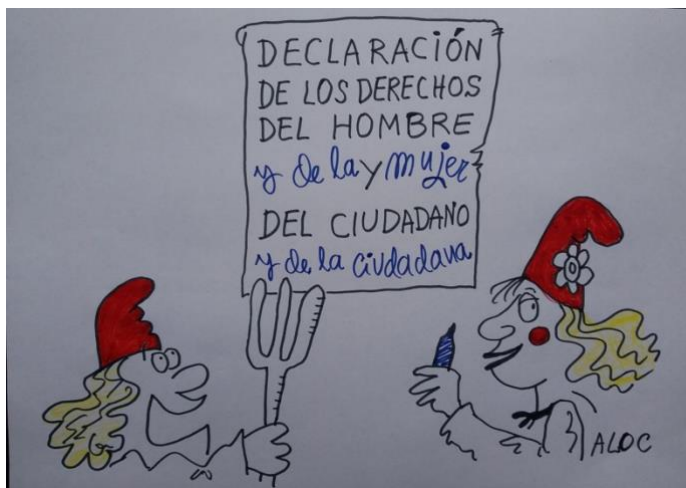 DECLARACIÓN
DE LOS DERECHOS
DEL HOMBRE
y de la y mujer
DEL CIUDADANO
y de la ciudadana
ALOC